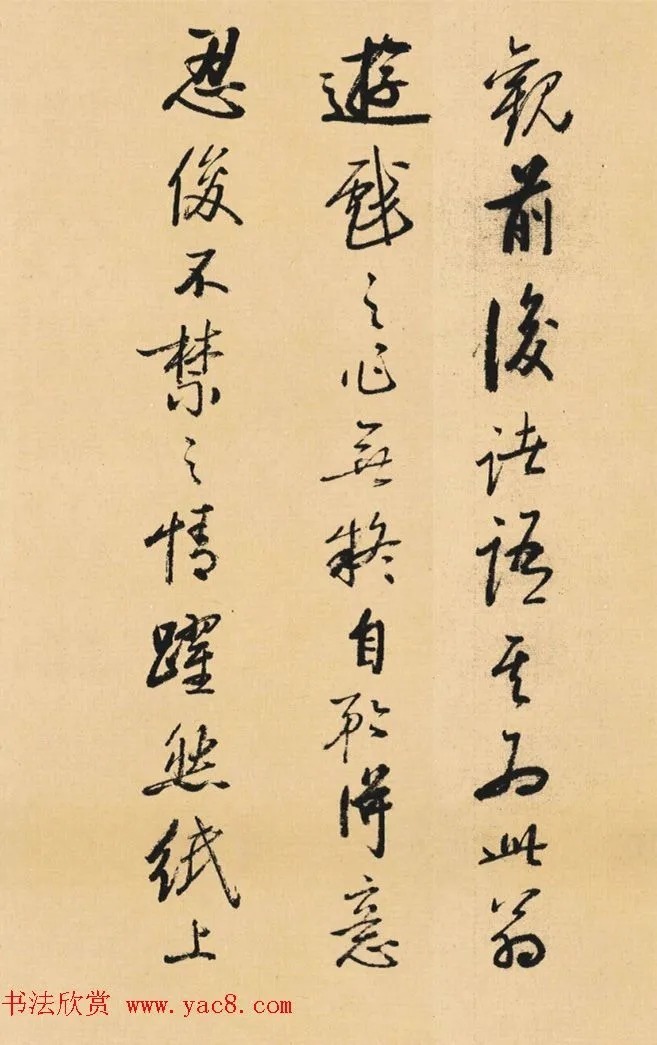 觀前後詿語其為此翁
遊戲之作無疑自矜得意
忍俊不禁之情躍然紙上
书法欣赏 www.yac8.com